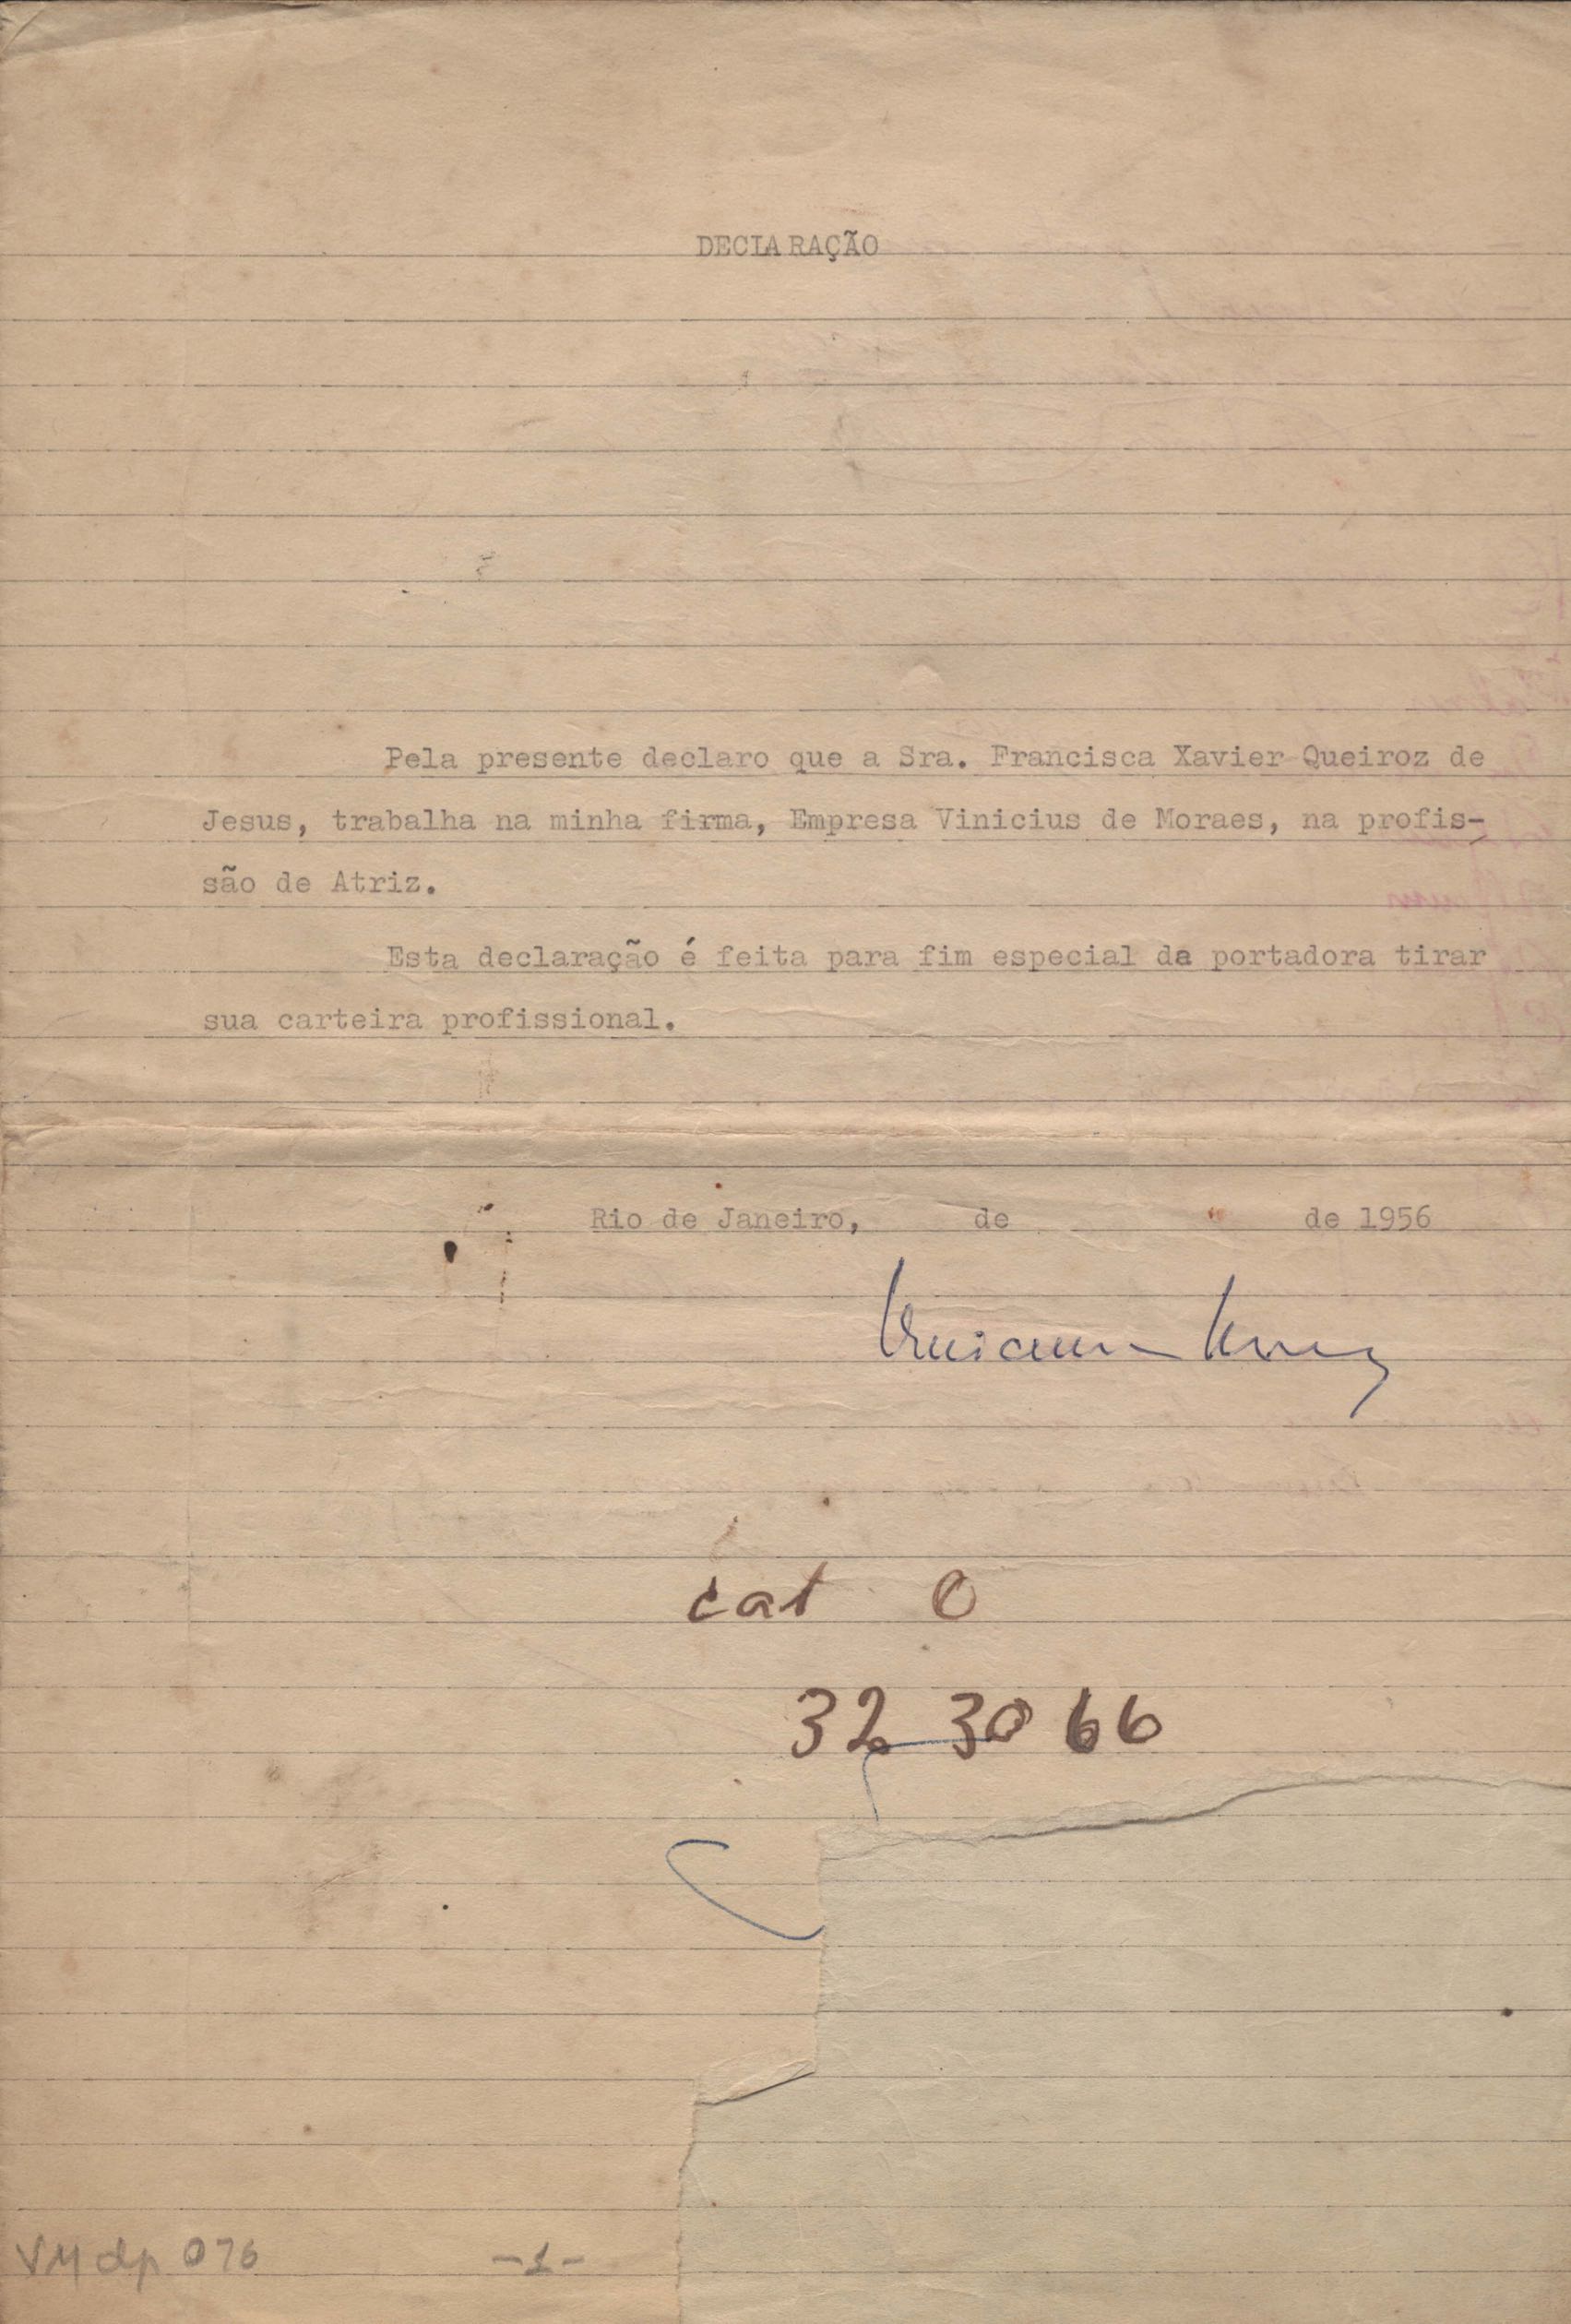 DECLARAÇÃO
Pela presente declaro que a Sra. Francisca Xavier Queiroz de
Jesus, trabalha na minha firma, Empresa Vinicius de Moraes, na profis-
são de Atriz.
Esta declaração é feita para fim especial da portadora tirar
sua carteira profissional.
Rio de Janeiro, de de 1956
cat 0
32 30 66
VM dp 076 -1-